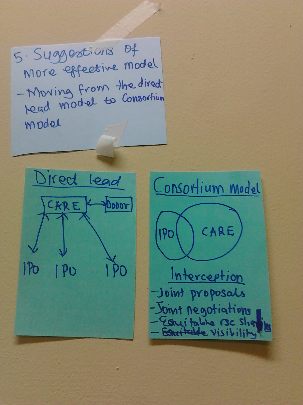 5. Suggestions of
more effective model
- Moving from the direct
lead model to Consortium
model
Direct lead
CARE
DONOR
IPO IPO IPO
Consortium model
IPO CARE
Interception
- Joint proposals
- Joint negotiations
- Equitable rsc sharing
- Equitable visibility